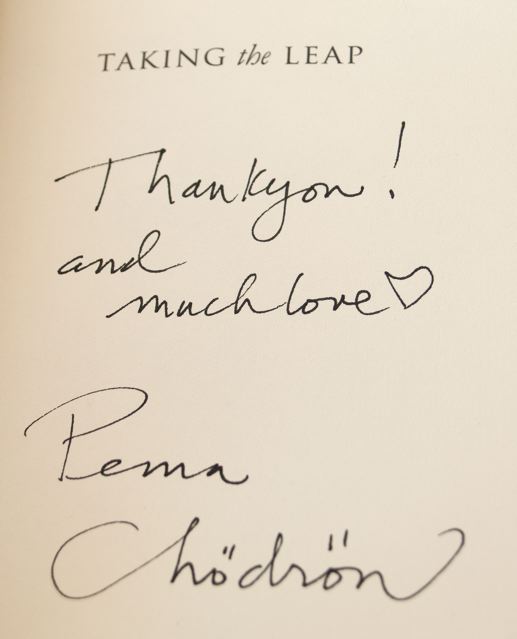 TAKING the LEAP
Thankyou!
and
much love♡
Pema
Chödrön